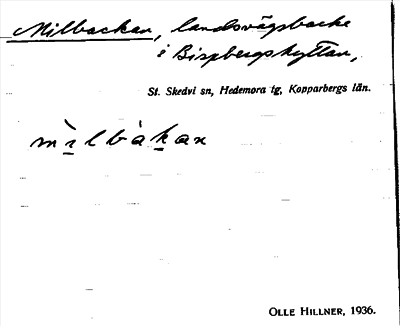 Milbackan, landsvägsbacke
i Bispbergshyttan,
St. Skedvi sn, Hedemora tg, Kopparbergs län.
mı̱̀lbàḵan
OLLE HILLNER, 1936.